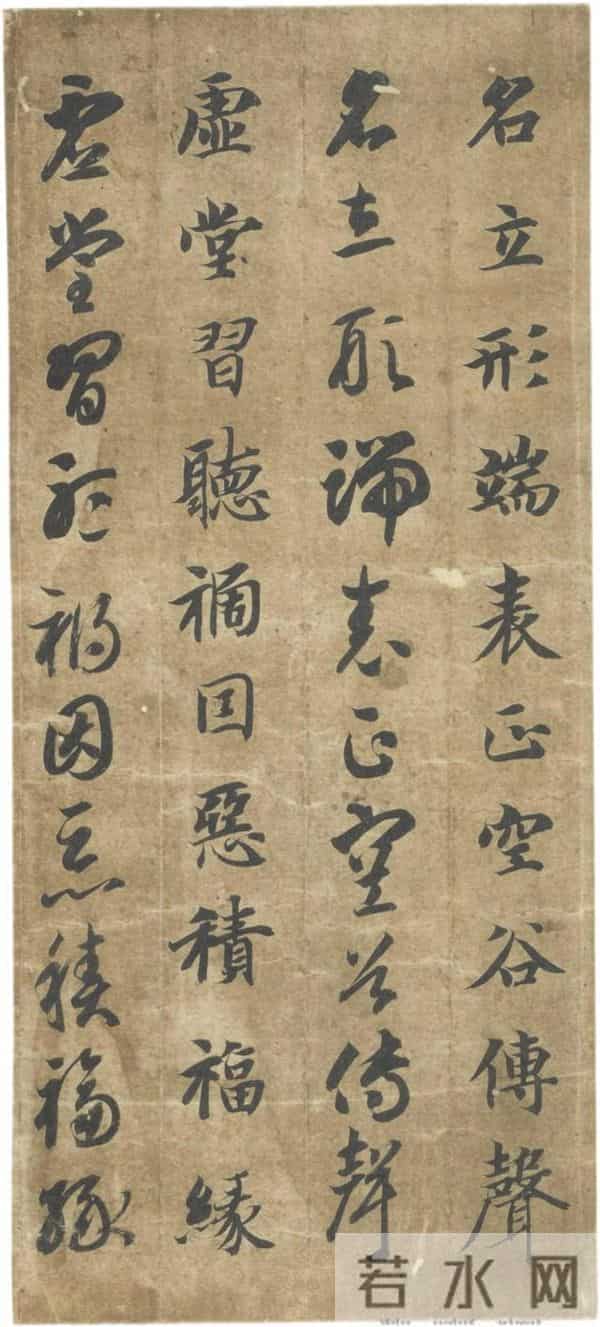 名立形端表正空谷傳聲
名立形端表正空谷傳聲
虛堂習聽禍因惡積福緣
虛堂習聽禍因惡積福緣
若水网